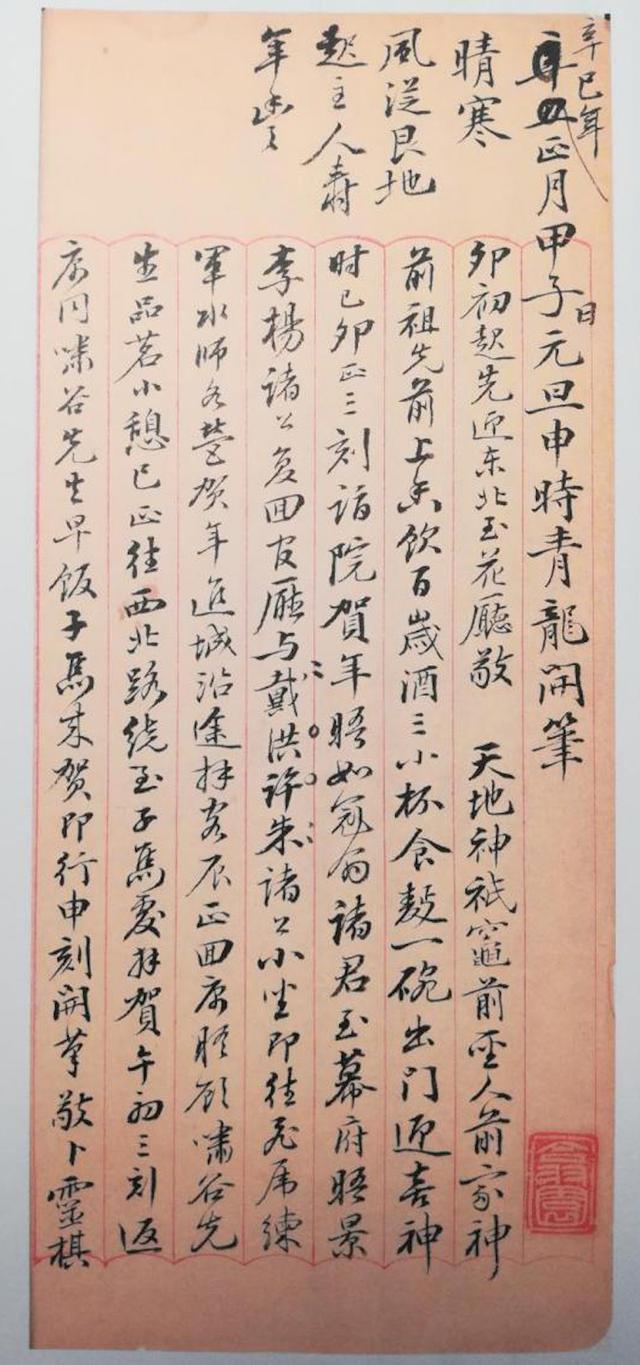 辛巳年
正月甲子日元旦申時青龍開筆
晴寒
風從艮地
起主人壽
年豊
卯初起先迎东北至花廳敬 天地神祇竈前聖人前家神
前祖先前上香飲百歲酒三小杯食麫一碗出門迎喜神
时已卯正三刻詣院賀年晤如冠翁諸君至幕府晤景
李楊諸公复回官廳与戴洪许朱諸公小坐即往飛虎練
軍水师各營贺年進城沿途拜客辰正回寓晤顧嘯谷先
生品茗小憩巳正往西北路繞至子馬處拜賀午初三刻返
寓同嘯谷先生早饭子馬来贺即行申刻開筆敬卜靈棋